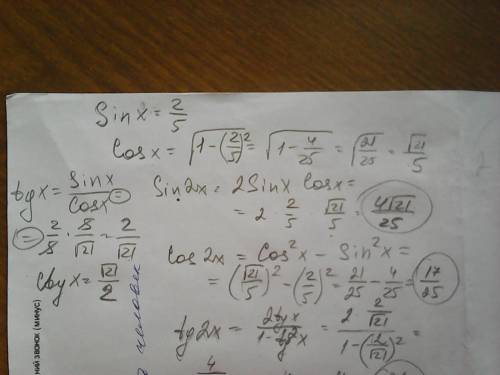 Sin x = 2/5
Cos x = √(1-(2/5)²) = √(1-4/25) = √(21/25) = √21/5
tg x = Sin x / Cos x =
= 2/5 · 5/√21 = 2/√21
ctg x = √21/2
Sin 2x = 2 Sin x Cos x =
= 2 · 2/5 · √21/5 = 4√21/25
Cos 2x = Cos² x - Sin² x =
= (√21/5)² - (2/5)² = 21/25 - 4/25 = 17/25
tg 2x = 2tg x / (1-tg² x) = 2 · 2/√21 / (1-(2/√21)²) =
4
ний звонок (минус)
человек